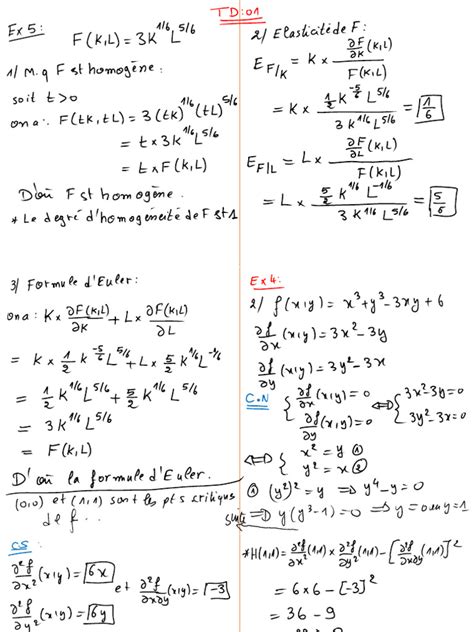 TD:01
Ex 5: F(K,L) = 3K^{1/6} L^{5/6}
1/ M.q F st homogène :
soit t > 0
on a : F(tK,tL) = 3(tK)^{1/6} (tL)^{5/6}
= t × 3K^{1/6} L^{5/6}
= t × F(K,L)
D'où F st homogène.
* Le degré d'homogénéité de F st 1
2/ Elasticité de F :
E_{F/K} = K × \frac{\frac{∂F}{∂K}(K,L)}{F(K,L)}
= K × \frac{\frac{1}{2} K^{-5/6} L^{5/6}}{3 K^{1/6} L^{5/6}} = \frac{1}{6}
E_{F/L} = L × \frac{\frac{∂F}{∂L}(K,L)}{F(K,L)}
= L × \frac{\frac{5}{2} K^{1/6} L^{-1/6}}{3 K^{1/6} L^{5/6}} = \frac{5}{6}
3/ Formule d'Euler :
on a : K × \frac{∂F(K,L)}{∂K} + L × \frac{∂F(K,L)}{∂L}
= K × \frac{1}{2} K^{-5/6} L^{5/6} + L × \frac{5}{2} K^{1/6} L^{-1/6}
= \frac{1}{2} K^{1/6} L^{5/6} + \frac{5}{2} K^{1/6} L^{5/6}
= 3 K^{1/6} L^{5/6}
= F(K,L)
D'où la formule d'Euler.
Ex 4:
2/ f(x,y) = x³ + y³ - 3xy + 6
\frac{∂f}{∂x}(x,y) = 3x² - 3y
\frac{∂f}{∂y}(x,y) = 3y² - 3x
C.N { \frac{∂f}{∂x}(x,y) = 0 ⟺ { 3x² - 3y = 0
\frac{∂f}{∂y}(x,y) = 0 3y² - 3x = 0
⟺ { x² = y ①
y² = x ②
① (y²)² = y ⟹ y⁴ - y = 0
suite ⟹ y(y³ - 1) = 0 ⟹ y = 0 ou y = 1
(0,0) et (1,1) sont les pts critiqus
de f...
CS :
\frac{∂²f}{∂x²}(x,y) = 6x et \frac{∂²f}{∂x∂y}(x,y) = -3
\frac{∂²f}{∂y²}(x,y) = 6y
* H(1,1) = \frac{∂²f}{∂x²}(1,1) × \frac{∂²f}{∂y²}(1,1) - [\frac{∂²f}{∂x∂y}(1,1)]²
= 6 × 6 - [-3]²
= 36 - 9